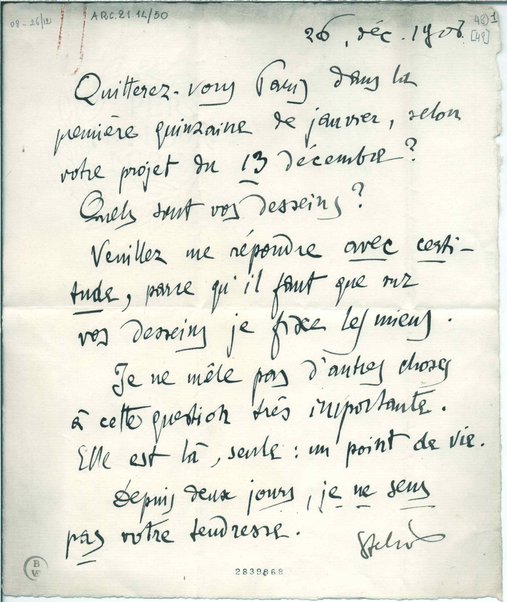 08-26/12
ARC.21 14/50
1
[48]
26, déc. 1908.
Quitterez-vous Paris dans la
première quinzaine de janvier, selon
votre projet du 13 décembre?
Quels sont vos desseins?
Veuillez me répondre avec certi-
tude, parce qu'il faut que sur
vos desseins je fixe les miens.
Je ne mêle pas d'autres choses
à cette question très importante.
Elle est là, seule: un point de vie.
Depuis deux jours, je ne sens
pas votre tendresse.
2839868